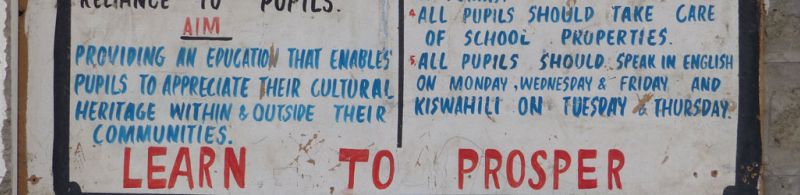 RELIANCE TO PUPILS.
AIM
PROVIDING AN EDUCATION THAT ENABLES
PUPILS TO APPRECIATE THEIR CULTURAL
HERITAGE WITHIN & OUTSIDE THEIR
COMMUNITIES.
4 ALL PUPILS SHOULD TAKE CARE
OF SCHOOL PROPERTIES.
5 ALL PUPILS SHOULD SPEAK IN ENGLISH
ON MONDAY, WEDNESDAY & FRIDAY AND
KISWAHILI ON TUESDAY & THURSDAY.
LEARN TO PROSPER